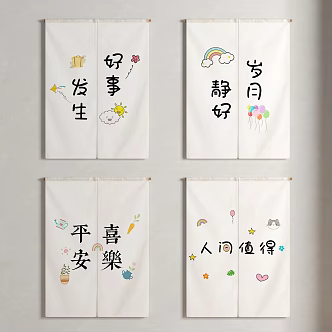 好事
发生
岁月
静好
平安
喜樂
人间值得